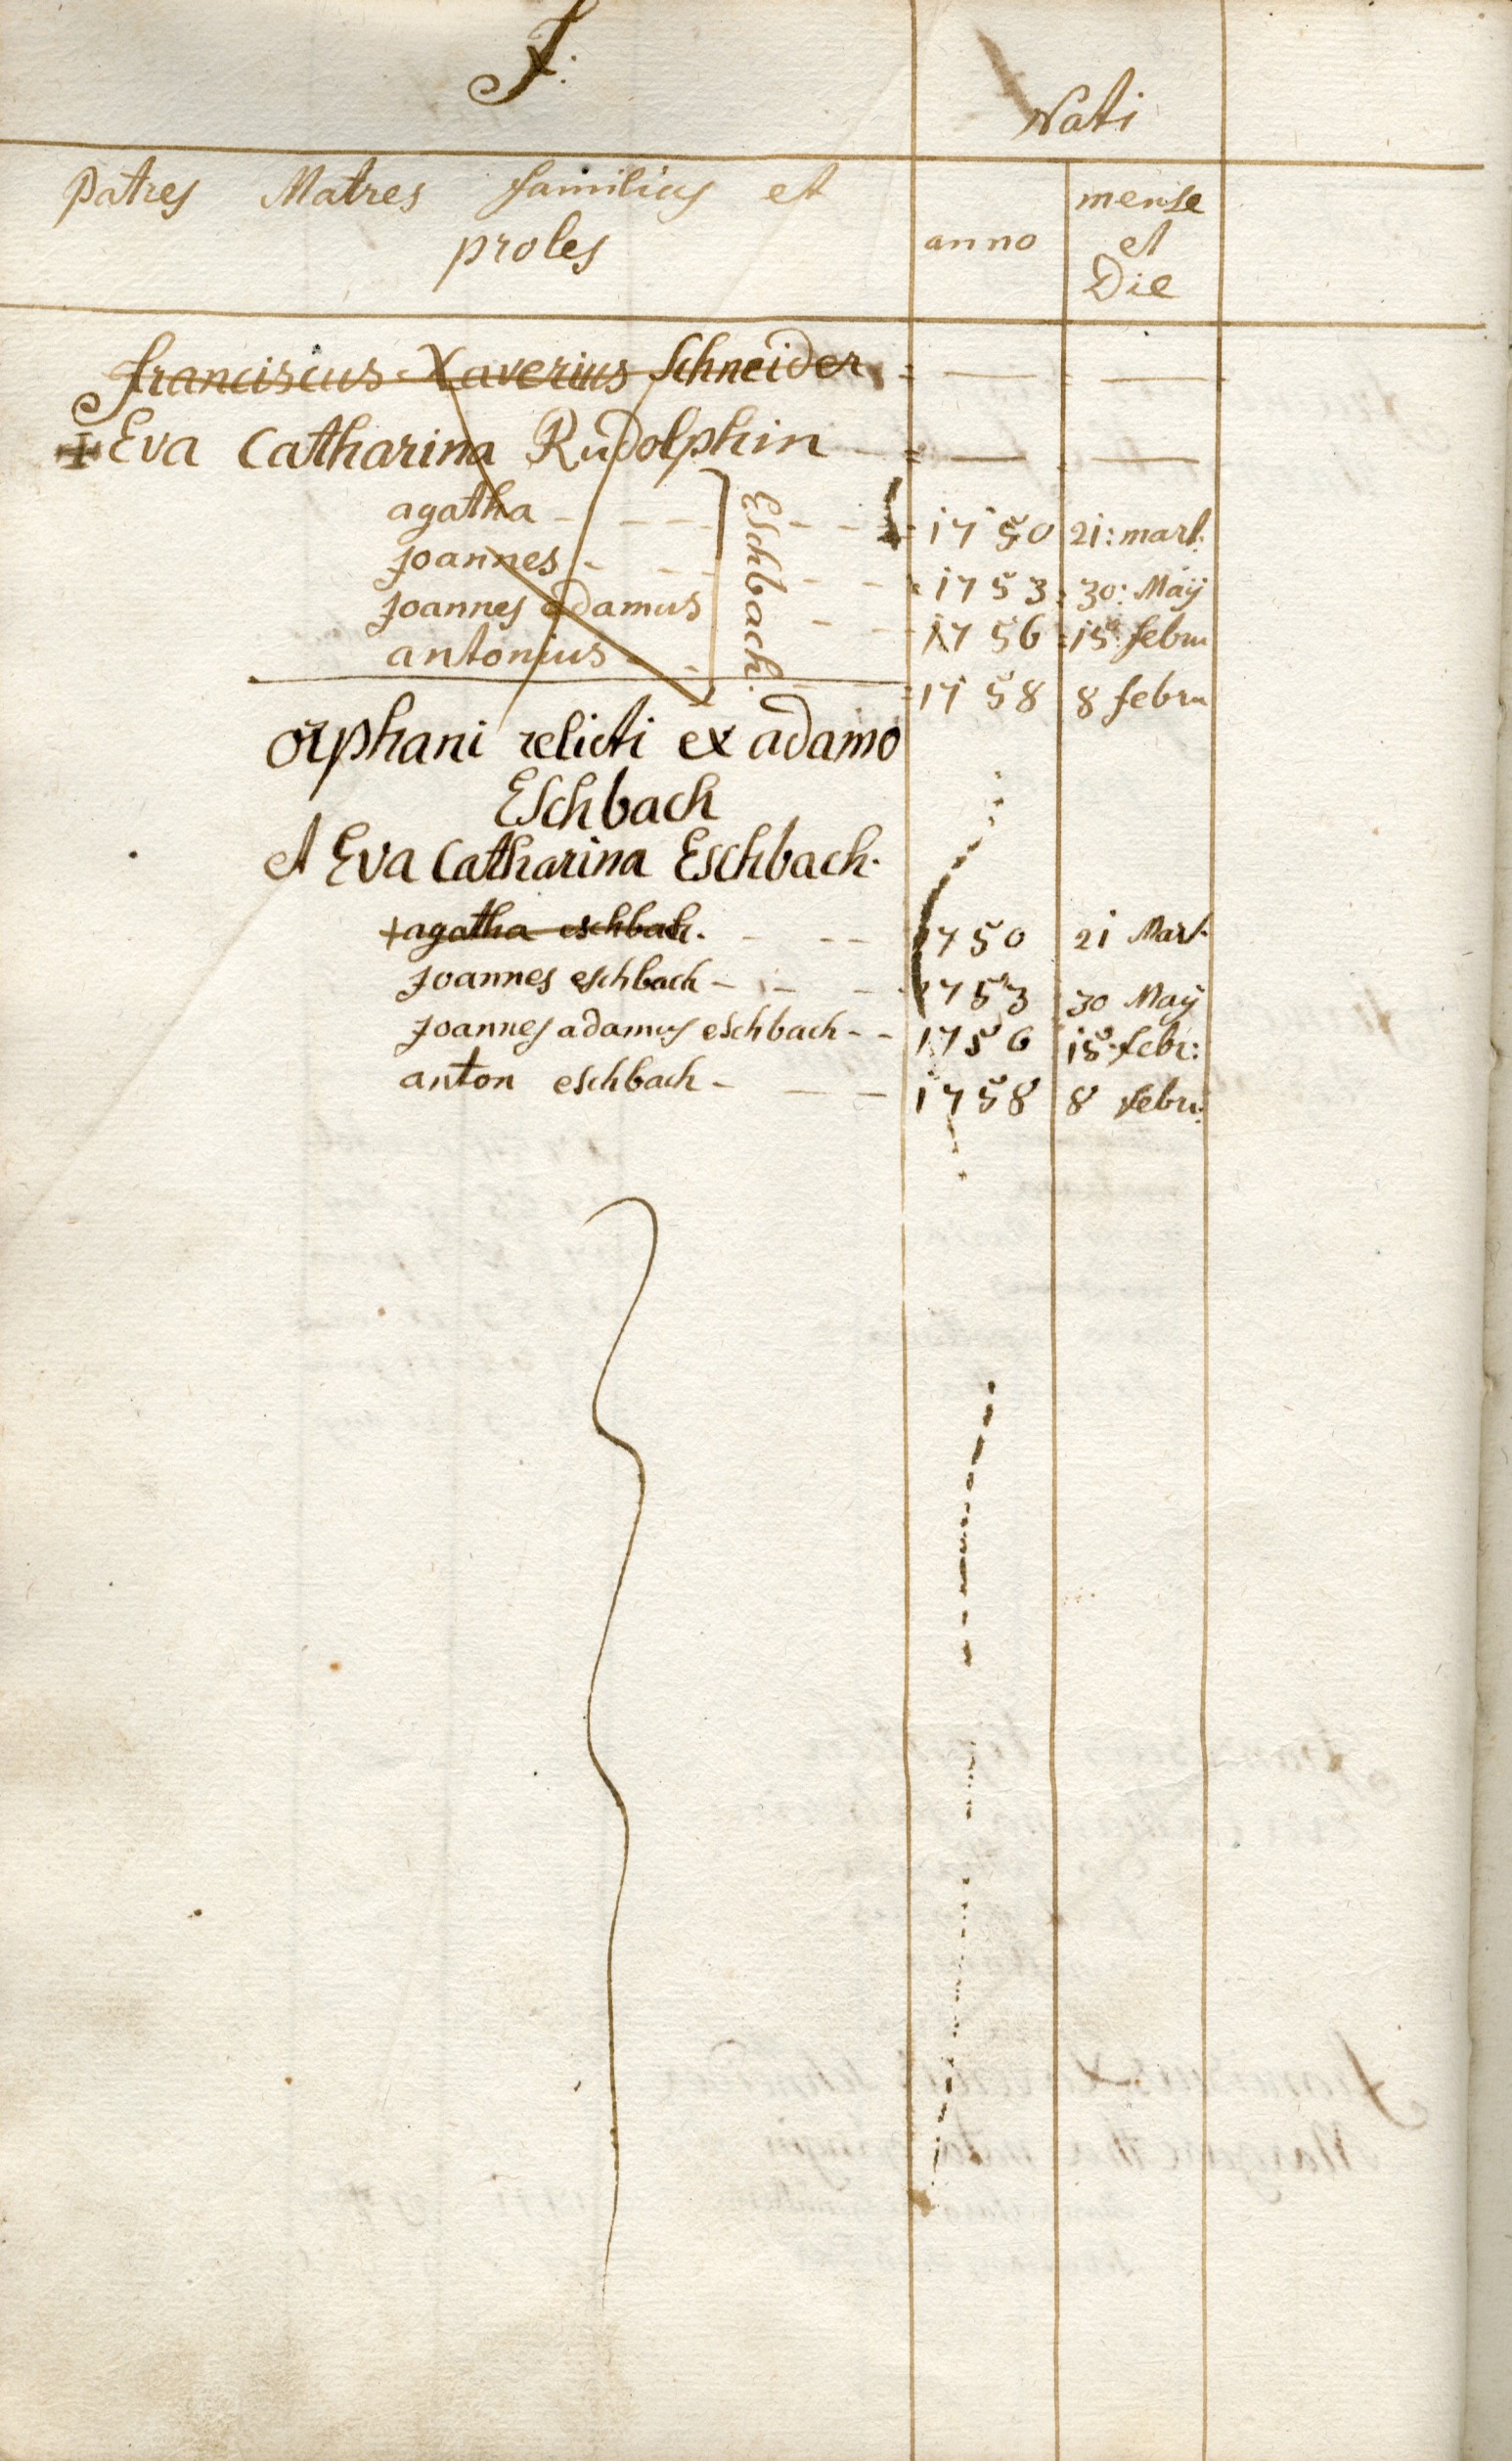 F:
Nati
Patres Matres familias et
proles
anno
mense
et
Die
franciscus Xaverius Schneider
+ Eva Catharina Rudolphin
agatha 1750 21: mart:
joannes 1753 30: Maÿ
joannes adamus 1756 15 febru
antonius 1758 8 febru
Eschbach.
orphani relicti ex adamo
Eschbach
et Eva Catharina Eschbach.
+ agatha eschbach. 1750 21 Mart.
joannes eschbach 1753 30 Maÿ
joannes adamus eschbach 1756 15 febr:
anton eschbach 1758 8 febru: